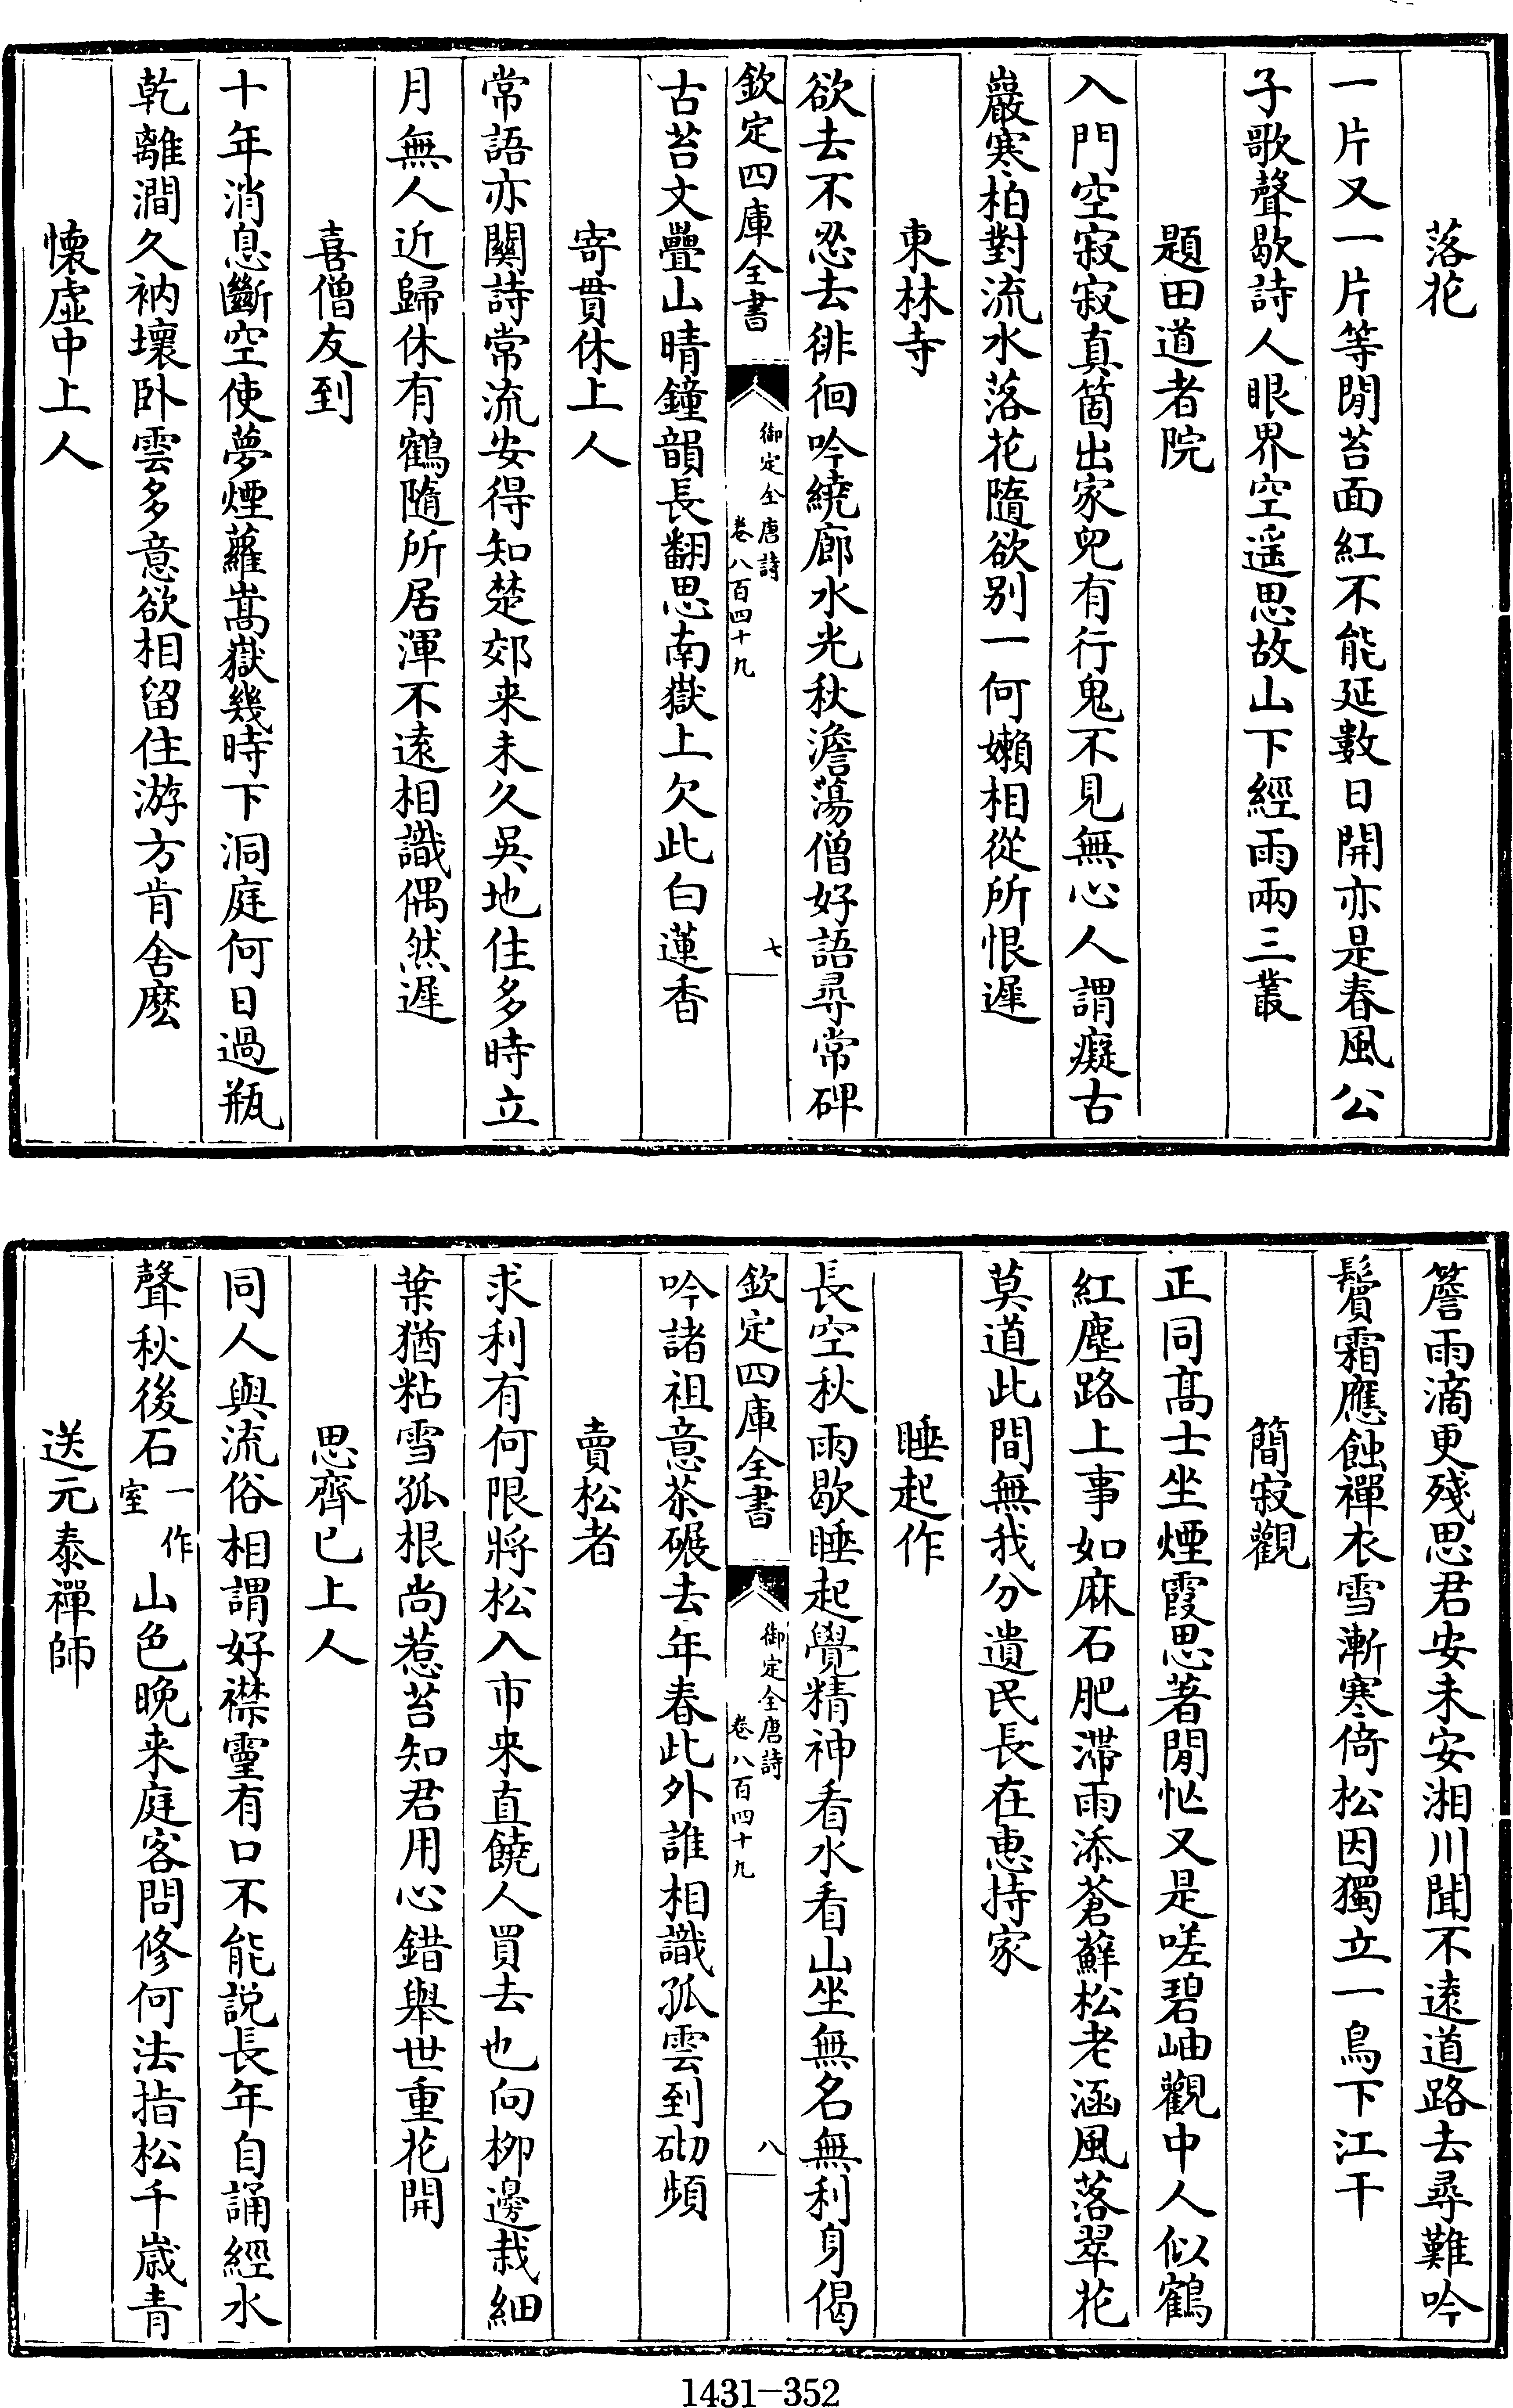 落花
一片又一片等閒苔面紅不能延數日開亦是春風公
子歌聲歇詩人眼界空遥思故山下經雨兩三叢
題田道者院
入門空寂寂真箇出家兒有行鬼不見無心人謂癡古
巖寒柏對流水落花隨欲别一何嬾相從所恨遲
東林寺
欲去不忍去徘徊吟繞廊水光秋澹蕩僧好語尋常碑
欽定四庫全書
御定全唐詩
卷八百四十九
七
古苔文疊山晴鐘韻長翻思南嶽上欠此白蓮香
寄貫休上人
常語亦關詩常流安得知楚郊来未久吳地住多時立
月無人近歸休有鶴隨所居渾不遠相識偶然遲
喜僧友到
十年消息斷空使夢煙蘿嵩嶽幾時下洞庭何日過瓶
乾離澗久衲壞卧雲多意欲相留住游方肯舍麽
懷虚中上人
簷雨滴更殘思君安未安湘川聞不遠道路去尋難吟
鬢霜應蝕禪衣雪漸寒倚松因獨立一鳥下江干
簡寂觀
正同髙士坐煙霞思著閒忙又是嗟碧岫觀中人似鶴
紅塵路上事如麻石肥滯雨添蒼蘚松老涵風落翠花
莫道此間無我分遺民長在惠持家
睡起作
長空秋雨歇睡起覺精神看水看山坐無名無利身偈
欽定四庫全書
御定全唐詩
卷八百四十九
八
吟諸祖意茶碾去年春此外誰相識孤雲到砌頻
賣松者
求利有何限將松入市来直饒人買去也向栁邊栽細
葉猶粘雪孤根尚惹苔知君用心錯舉世重花開
思齊已上人
同人與流俗相謂好襟靈有口不能説長年自誦經水
聲秋後石一作室山色晚来庭客問修何法指松千歳青
送元泰禪師
1431—352